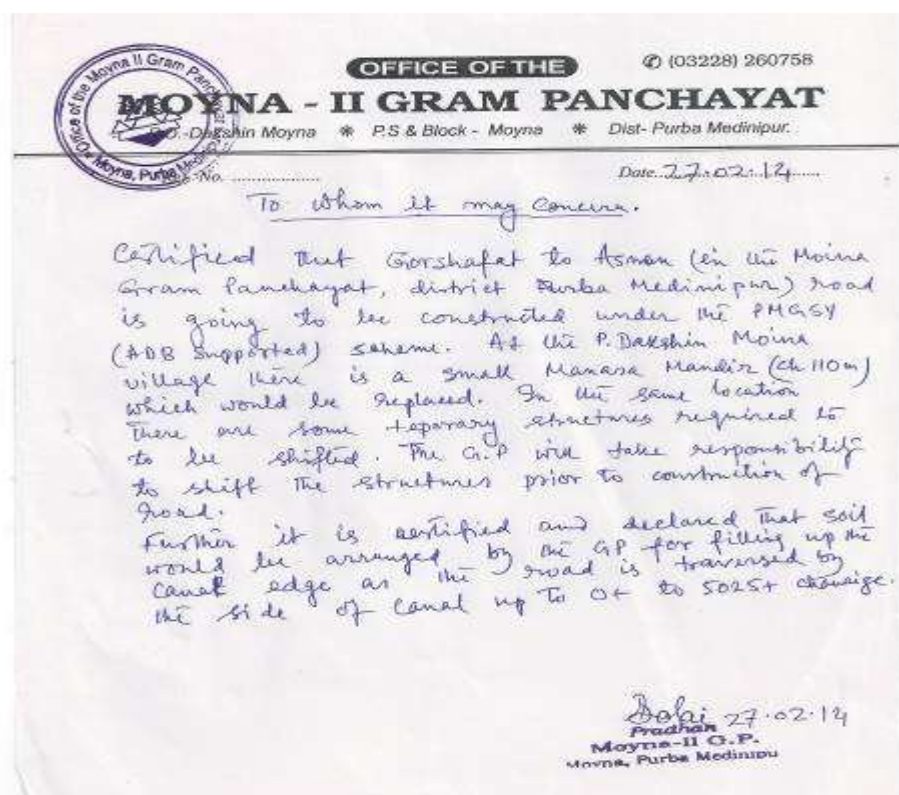 Office of the Moyna II Gram Panchayat
Moyna, Purba Medinipur
OFFICE OF THE
✆ (03228) 260758
MOYNA - II GRAM PANCHAYAT
P.O.-Dakshin Moyna * P.S & Block - Moyna * Dist- Purba Medinipur.
No. ..................
Date 27.02.14
To whom it may concern.
Certified that Gorshafat to Asnan (in the Moina
Gram Panchayat, district Purba Medinipur) road
is going to be constructed under the PMGSY
(ADB Supported) scheme. At the P. Dakshin Moina
village there is a small Manasa Mandir (ch 110m)
which would be replaced. In the same location
There are some teporary structures required to
to be shifted. The G.P will take responsibility
to shift the structures prior to construction of
road.
Further it is certified and declared that soil
would be arranged by the GP for filling up the
canal edge as the road is traversed by
the side of canal up to 0+ to 5025+ chainige.
Dolai 27.02.14
Pradhan
Moyna-II G.P.
Moyna, Purba Medinipu